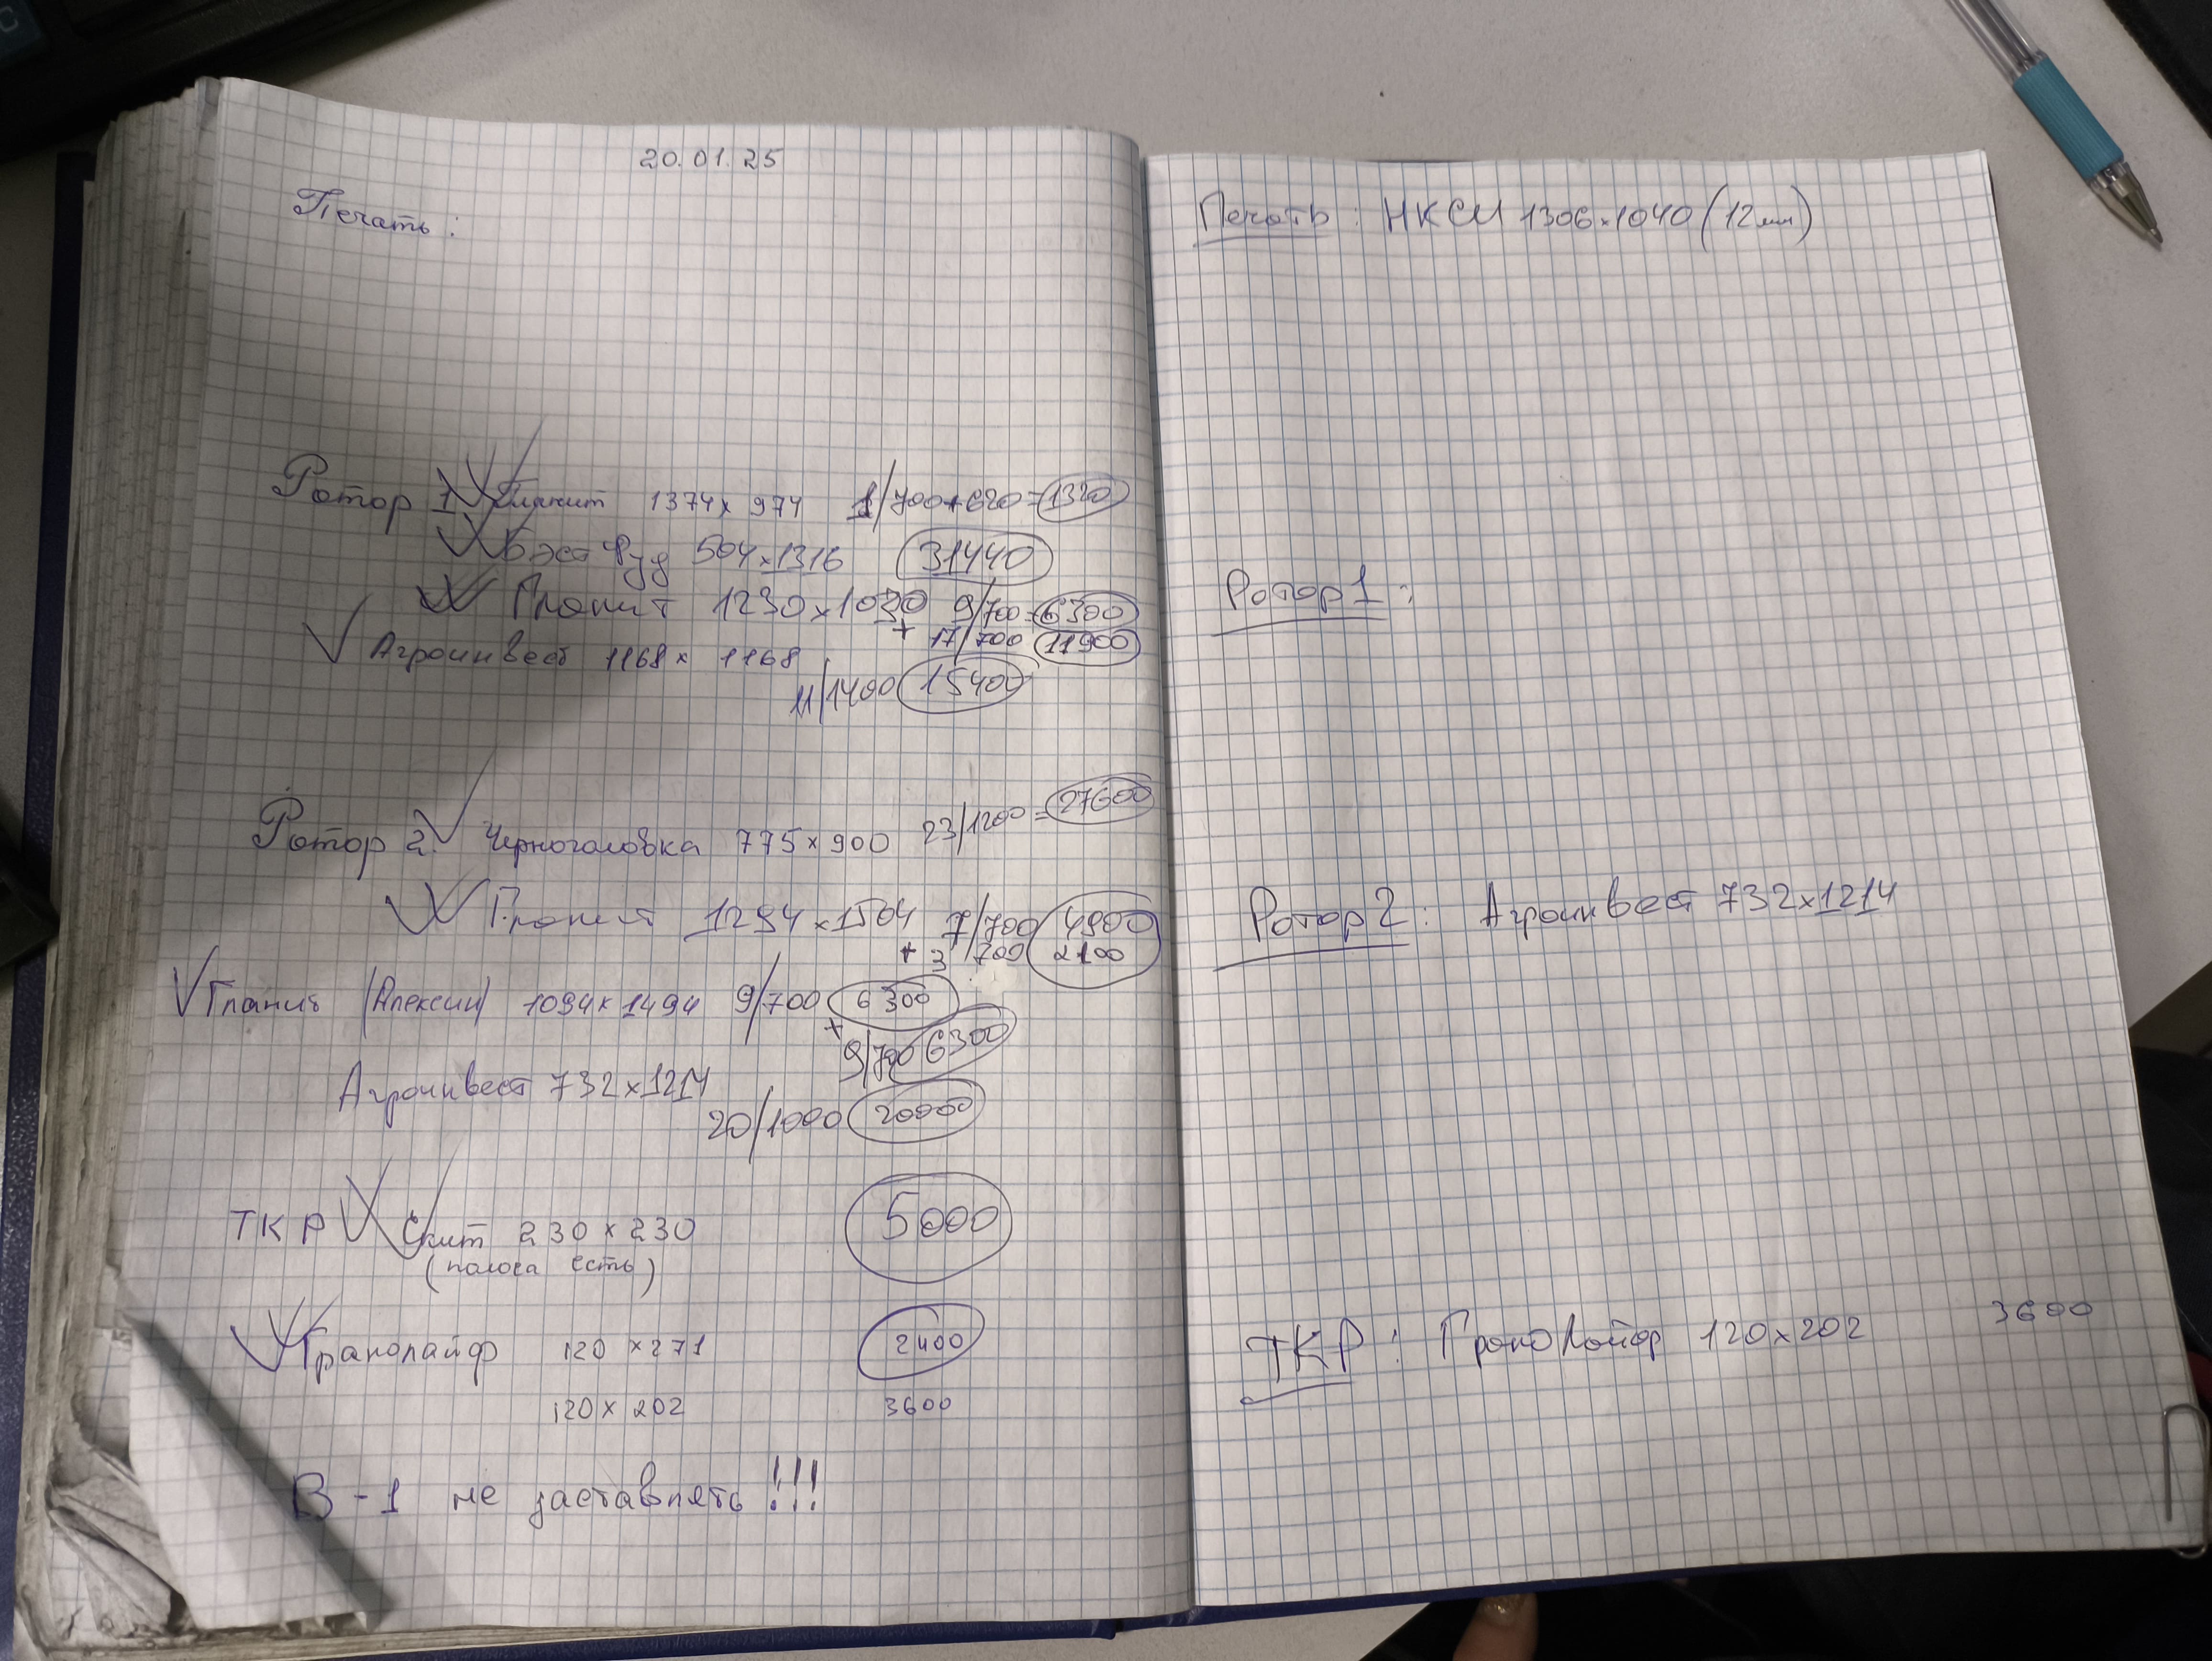 20.01.25
Печать:
Ротор 1 Гланит 1374 x 974 1/700+620=1320
Бэст Фуд 504 x 1316 31440
Гланит 1230 x 1030 9/700=6300
+ 17/700 11900
Агроинвест 1168 x 1168
11/1400 15400
Ротор 2 Черноголовка 775 x 900 23/1200=27600
Гланит 1294 x 1504 7/700 4900
+ 3/700 2100
Гланит (Алексин) 1094 x 1494 9/700 6300
+ 9/700 6300
Агроинвест 732 x 1214
20/1000 20000
ТКР Скит 230 x 230 5000
(полоса есть)
Гранолайф 120 x 271 2400
120 x 202 3600
В-1 не заставлять!!!
Печать: НКСМ 1306 x 1040 (12мм)
Ротор 1:
Ротор 2: Агроинвест 732 x 1214
ТКР: 120 x 202 3600